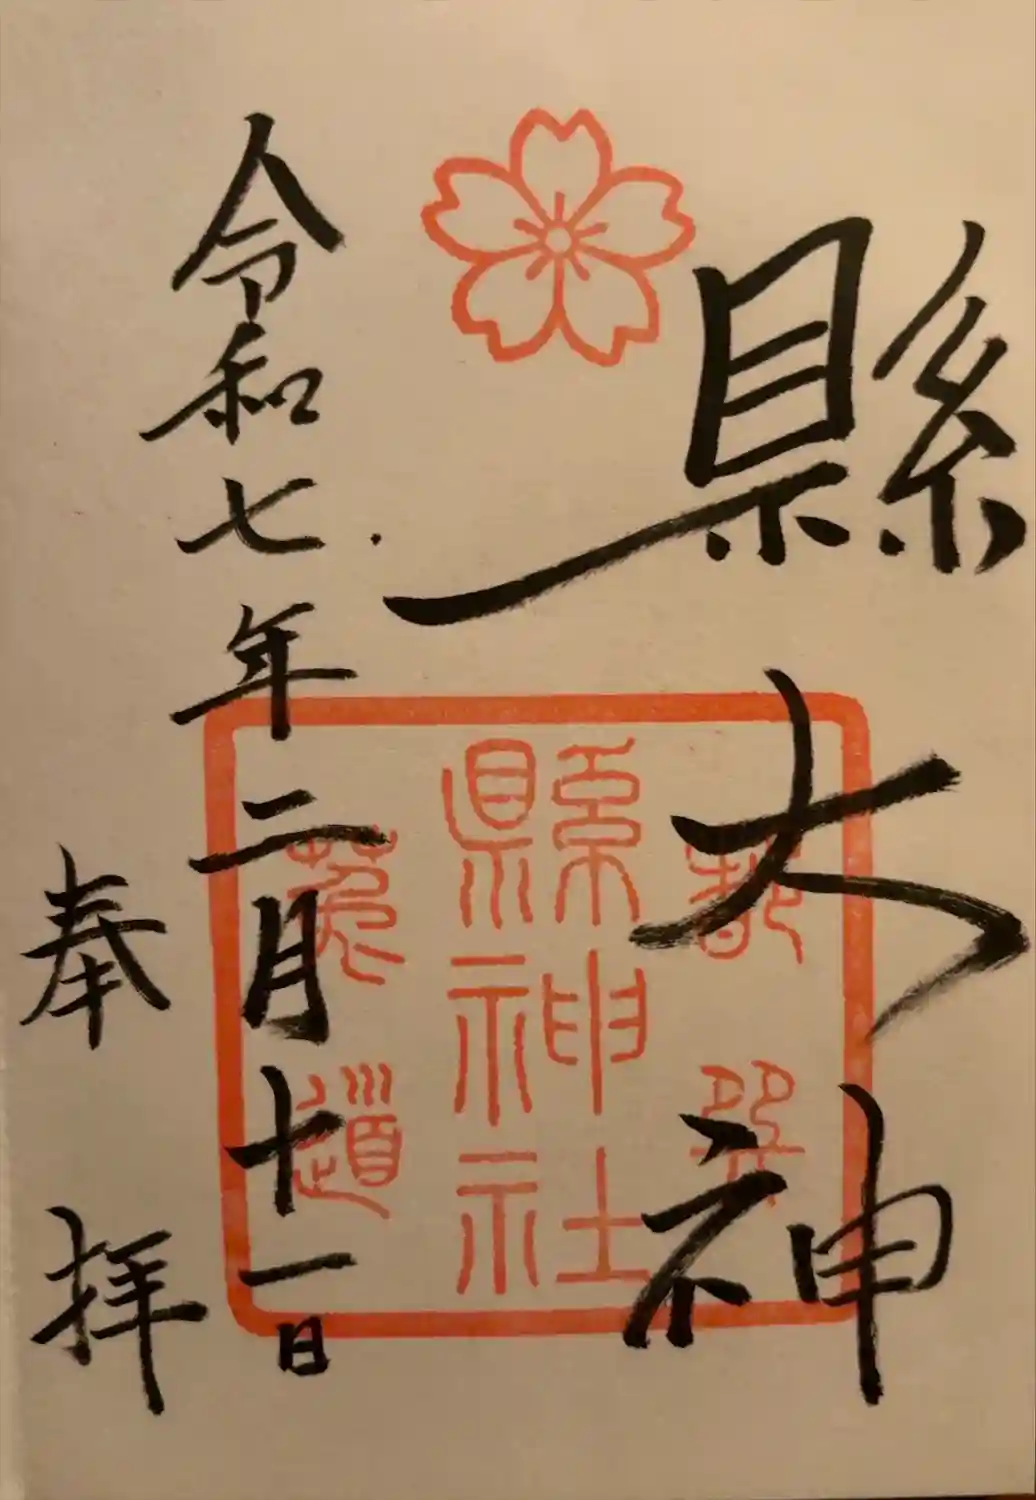 縣大神
都管
縣神社
菟道
令和七年二月十一日
奉拝